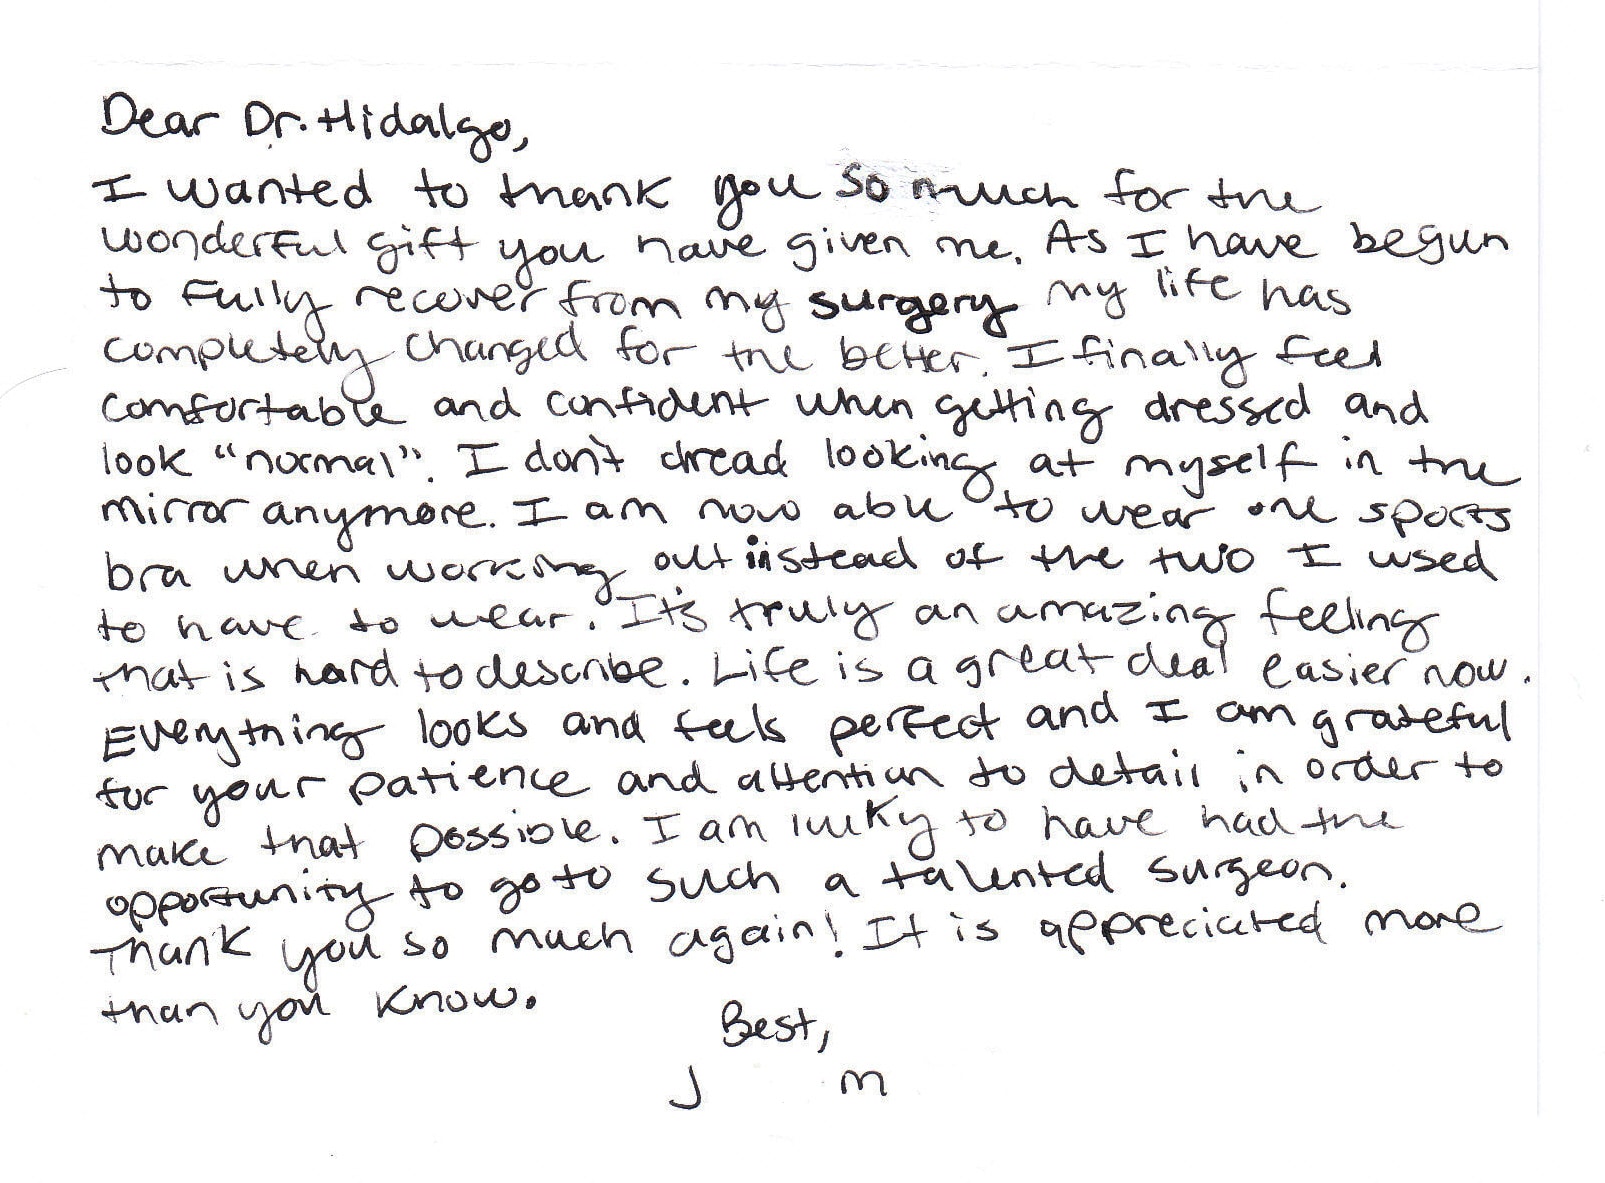 Dear Dr. Hidalgo,
I wanted to thank you so much for the
wonderful gift you have given me. As I have begun
to fully recover from my surgery my life has
completely changed for the better. I finally feel
comfortable and confident when getting dressed and
look "normal". I don't dread looking at myself in the
mirror anymore. I am now able to wear one sports
bra when working out instead of the two I used
to have to wear. It's truly an amazing feeling
that is hard to describe. Life is a great deal easier now.
Everything looks and feels perfect and I am grateful
for your patience and attention to detail in order to
make that possible. I am lucky to have had the
opportunity to go to such a talented surgeon.
Thank you so much again! It is appreciated more
than you know.
Best,
J M